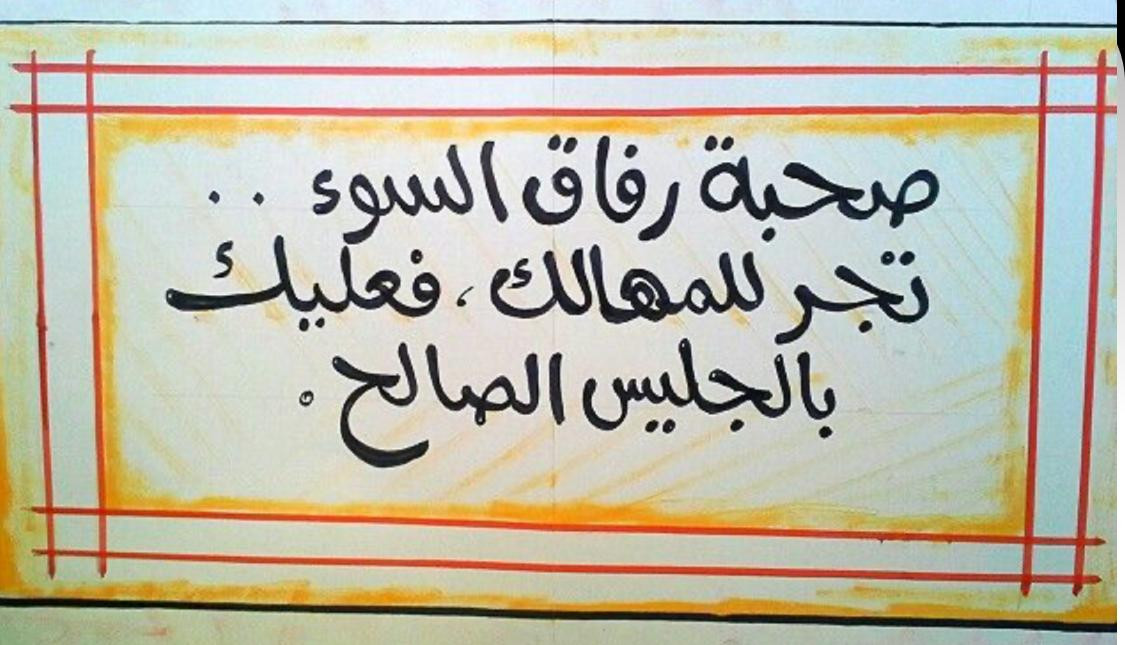 صحبة رفاق السوء ..
تجر للمهالك ، فعليك
بالجليس الصالح .